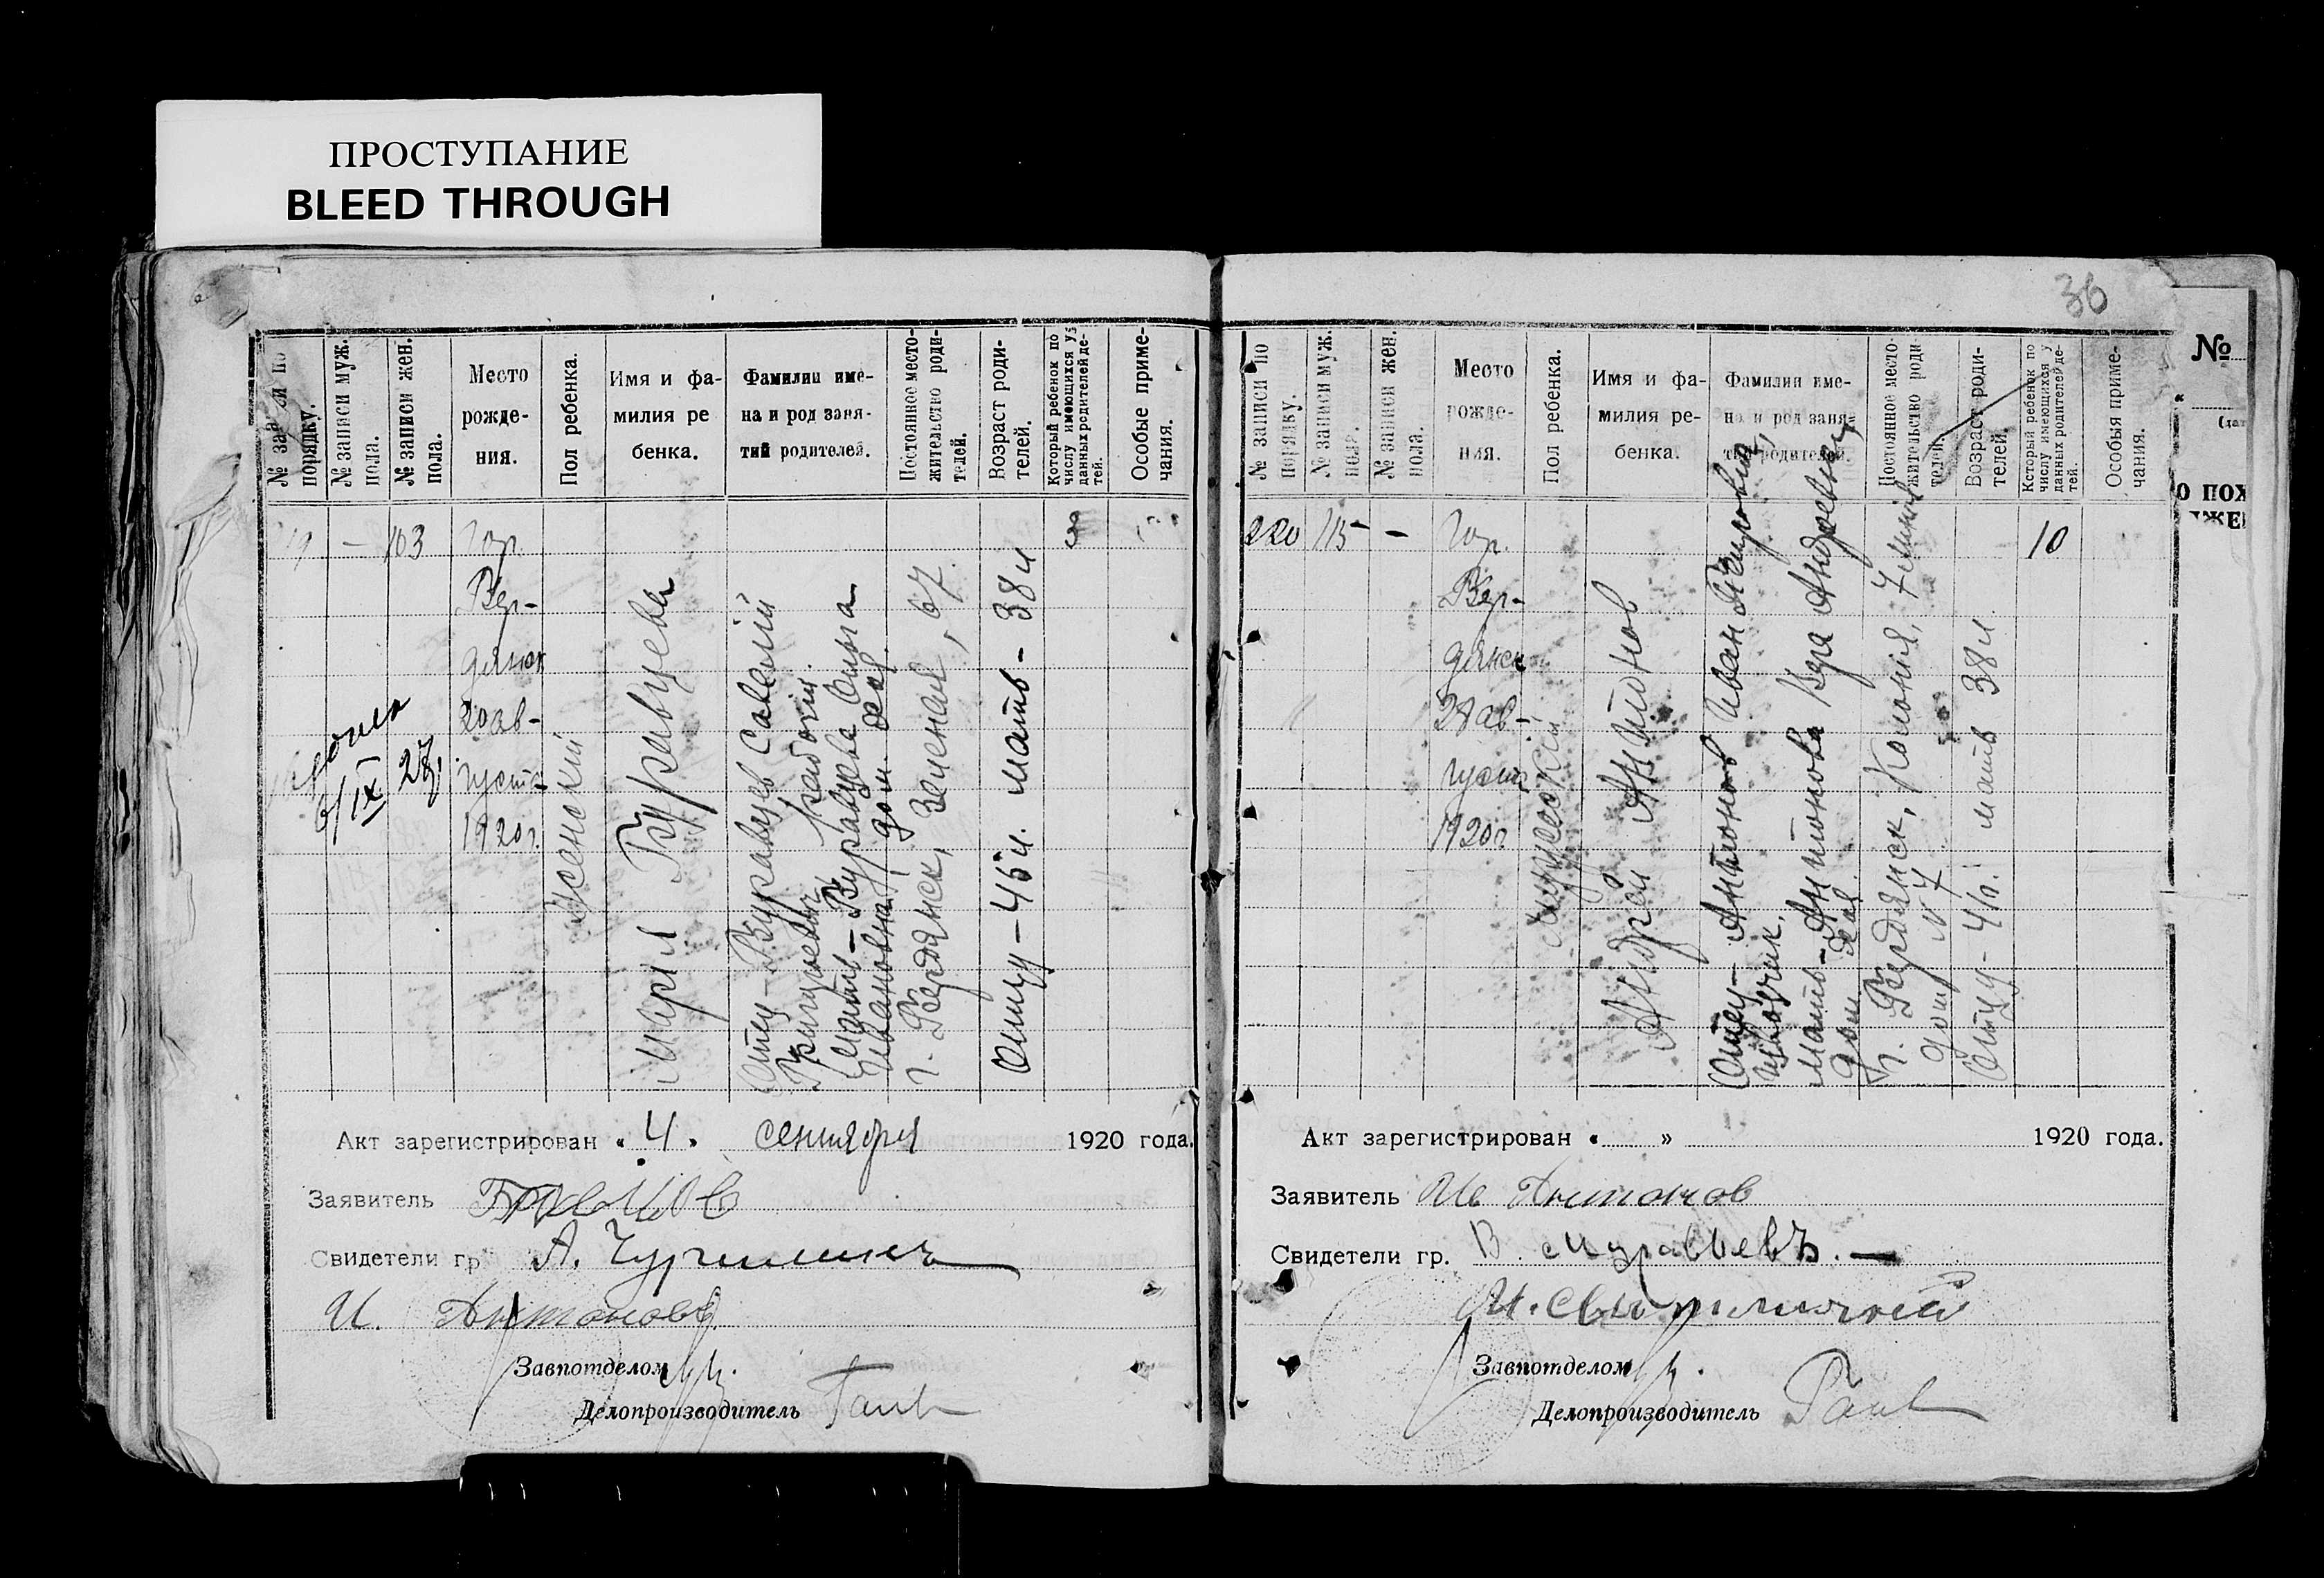 ПРОСТУПАНИЕ
BLEED THROUGH
№ записи по порядку.
№ записи муж. пола.
№ записи жен. пола.
Место рожде-ния.
Пол ребенка.
Имя и фа-милия ре бенка.
Фамилии име-на и род заня-тий родителей.
Постоянное место-жительство роди-телей.
Возраст роди-телей.
Который ребенок по числу имеющихся у данных родителей де-тей.
Особые приме-чания.
19
—
103
Гор.
Бер-
дянск
20 ав-
густа
1920 г.
6/IX 27
Женский
Мария Буравцева
Отец – Буравцев Савелий
Григорьевич, рабочий.
Мать – Буравцева Анна
Ивановна, дом. хоз.
г. Бердянск, Зеленая, 67
Отцу – 45 л. мать – 38 л
3
Акт зарегистрирован « 4 » сентября 1920 года.
Заявитель
Свидетели гр. А.
И. Антоновъ
Завпотделом
Делопроизводитель
36
№ записи по порядку.
№ записи муж. пола.
№ записи жен. пола.
Место рожде-ния.
Пол ребенка.
Имя и фа-милия ре-бенка.
Фамилии име-на и род заня-тий родителей.
Постоянное место-жительство роди-телей.
Возраст роди-телей.
Который ребенок по числу имеющихся у данных родителей де-тей.
Особыя приме-чания.
220
115
–
Гор.
Бер-
дянск
28 ав-
густа
1920 г
мужеский
Андрей Антонов
Отец – Антонов Иван Петрович,
извозчик.
Мать – Антонова Вера Андреевна,
дом. хоз.
г. Бердянск, Колония, 7 линия
дом № 7
Отцу – 41 л. мать 38 л
10
Акт зарегистрирован « » 1920 года.
Заявитель Ив Антонов
Свидетели гр. В. Муравьевъ.—
И.
Завпотделом
Делопроизводитель
№
О РОЖ